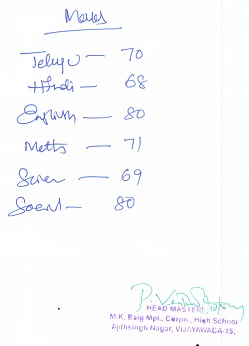 Marks
Telugu — 70
Hindi — 68
English — 80
Maths — 71
Scien — 69
Social — 80
HEAD MASTER
M.K. Baig Mpl., Corpn., High School
Ajithsingh Nagar, VIJAYAWADA-15.